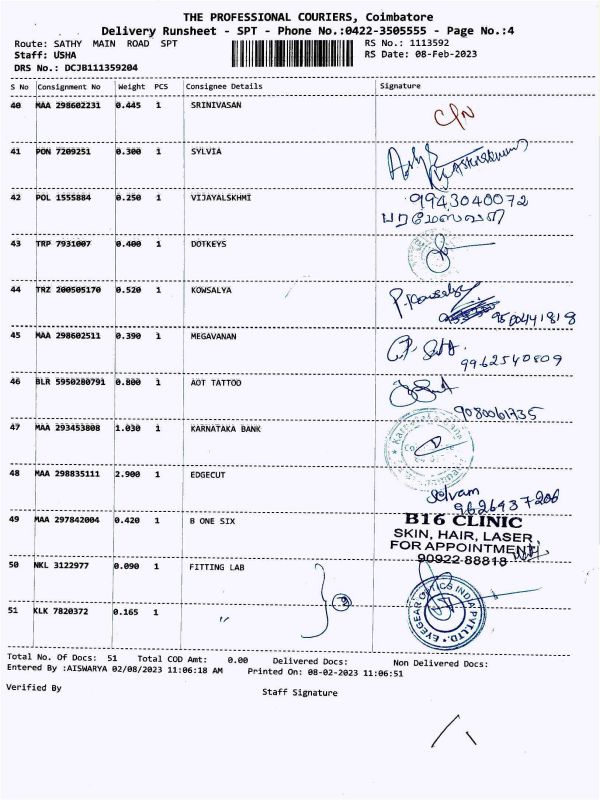 THE PROFESSIONAL COURIERS, Coimbatore
Delivery Runsheet - SPT - Phone No.:0422-3505555 - Page No.:4
Route: SATHY MAIN ROAD SPT RS No.: 1113592
Staff: USHA RS Date: 08-Feb-2023
DRS No.: DCJB111359204
S No Consignment No Weight PCS Consignee Details Signature
40 MAA 298602231 0.445 1 SRINIVASAN
41 PON 7209251 0.300 1 SYLVIA
42 POL 1555884 0.250 1 VIJAYALSKHMI 9943040072
பரமேஸ்வரி
43 TRP 7931007 0.400 1 DOTKEYS
44 TRZ 200505170 0.520 1 KOWSALYA P. Kowsalya
9500441818
45 MAA 298602511 0.390 1 MEGAVANAN
9962540809
46 BLR 5950280791 0.800 1 AOT TATTOO
9080061735
47 MAA 293453808 1.030 1 KARNATAKA BANK
48 MAA 298835111 2.900 1 EDGECUT Selvam
9626437206
49 MAA 297842004 0.420 1 B ONE SIX B16 CLINIC
SKIN, HAIR, LASER
FOR APPOINTMENT
90922 88818
50 NKL 3122977 0.090 1 FITTING LAB
51 KLK 7820372 0.165 1 〃 2 EYEGEAR OPTICS INDIA PVT.LTD.
Total No. Of Docs: 51 Total COD Amt: 0.00 Delivered Docs: Non Delivered Docs:
Entered By :AISWARYA 02/08/2023 11:06:18 AM Printed On: 08-02-2023 11:06:51
Verified By Staff Signature